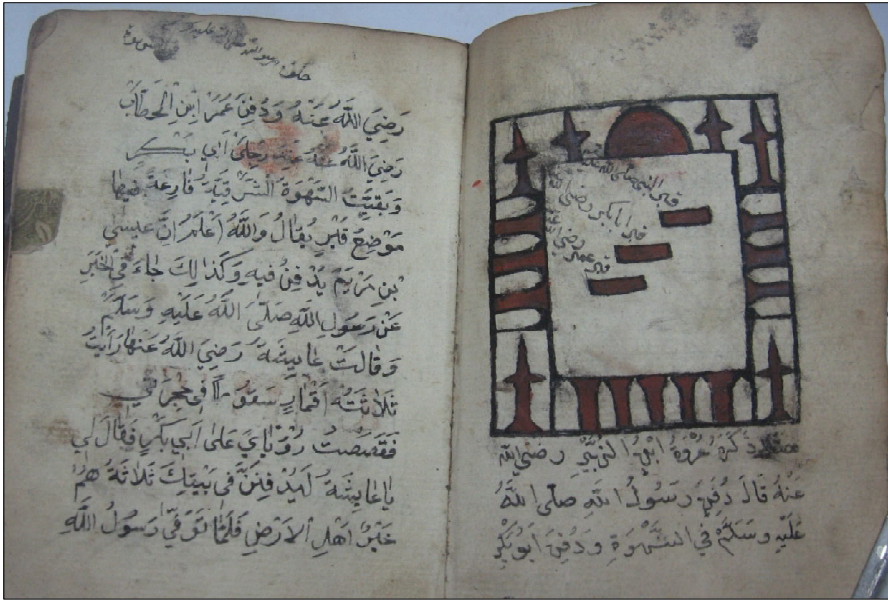 قبر النبي صلى الله عليه
قبر ابا بكر رضي الله
قبر عمر رضي الله
ذَكَرَهُ عُرْوَةُ ابْنُ الزُّبَيْرِ رضي الله
عَنْهُ قَالَ دُفِنَ رَسُولُ اللَّهِ صَلَّى اللَّهُ
عَلَيْهِ وَسَلَّمَ فِي السَّهْوَةِ وَدُفِنَ اَبُو بَكْرٍ
خلف رسول الله صلى الله عليه
رَضِيَ اللَّهُ عَنْهُ وَدُفِنَ عُمَرُ ابْنُ الْخَطَّابِ
رَضِيَ اللَّهُ عَنْهُ عِنْدَ رِجْلَيْ اَبِي بَكْرٍ
وَبَقِيَتِ السَّهْوَةُ الشَّرْقِيَّةُ فَارِغَةً فِيهَا
مَوْضِعُ قَبْرٍ يُقَالُ وَاللَّهُ اَعْلَمُ اِنَّ عِيسَى
بْنَ مَرْيَمَ يُدْفَنُ فِيهِ وَكَذَالِكَ جَاءَ فِي الْخَبَرِ
عَنْ رَسُولِ اللَّهِ صَلَّى اللَّهُ عَلَيْهِ وَسَلَّمَ
وَقَالَتْ عَايِشَةُ رَضِيَ اللَّهُ عَنْهَا رَاَيْتُ
ثَلَاثَةَ اَقْمَارٍ سُقُوطًا فِي حُجْرَتِي
فَقَصَصْتُ رُؤْيَايَ عَلَى اَبِي بَكْرٍ فَقَالَ لِي
يَا عَايِشَةُ لَيُدْفَنَنَّ فِي بَيْتِكِ ثَلَاثَةٌ هُمْ
خَيْرُ اَهْلِ الْاَرْضِ فَلَمَّا تُوُفِّيَ رَسُولُ اللَّهِ